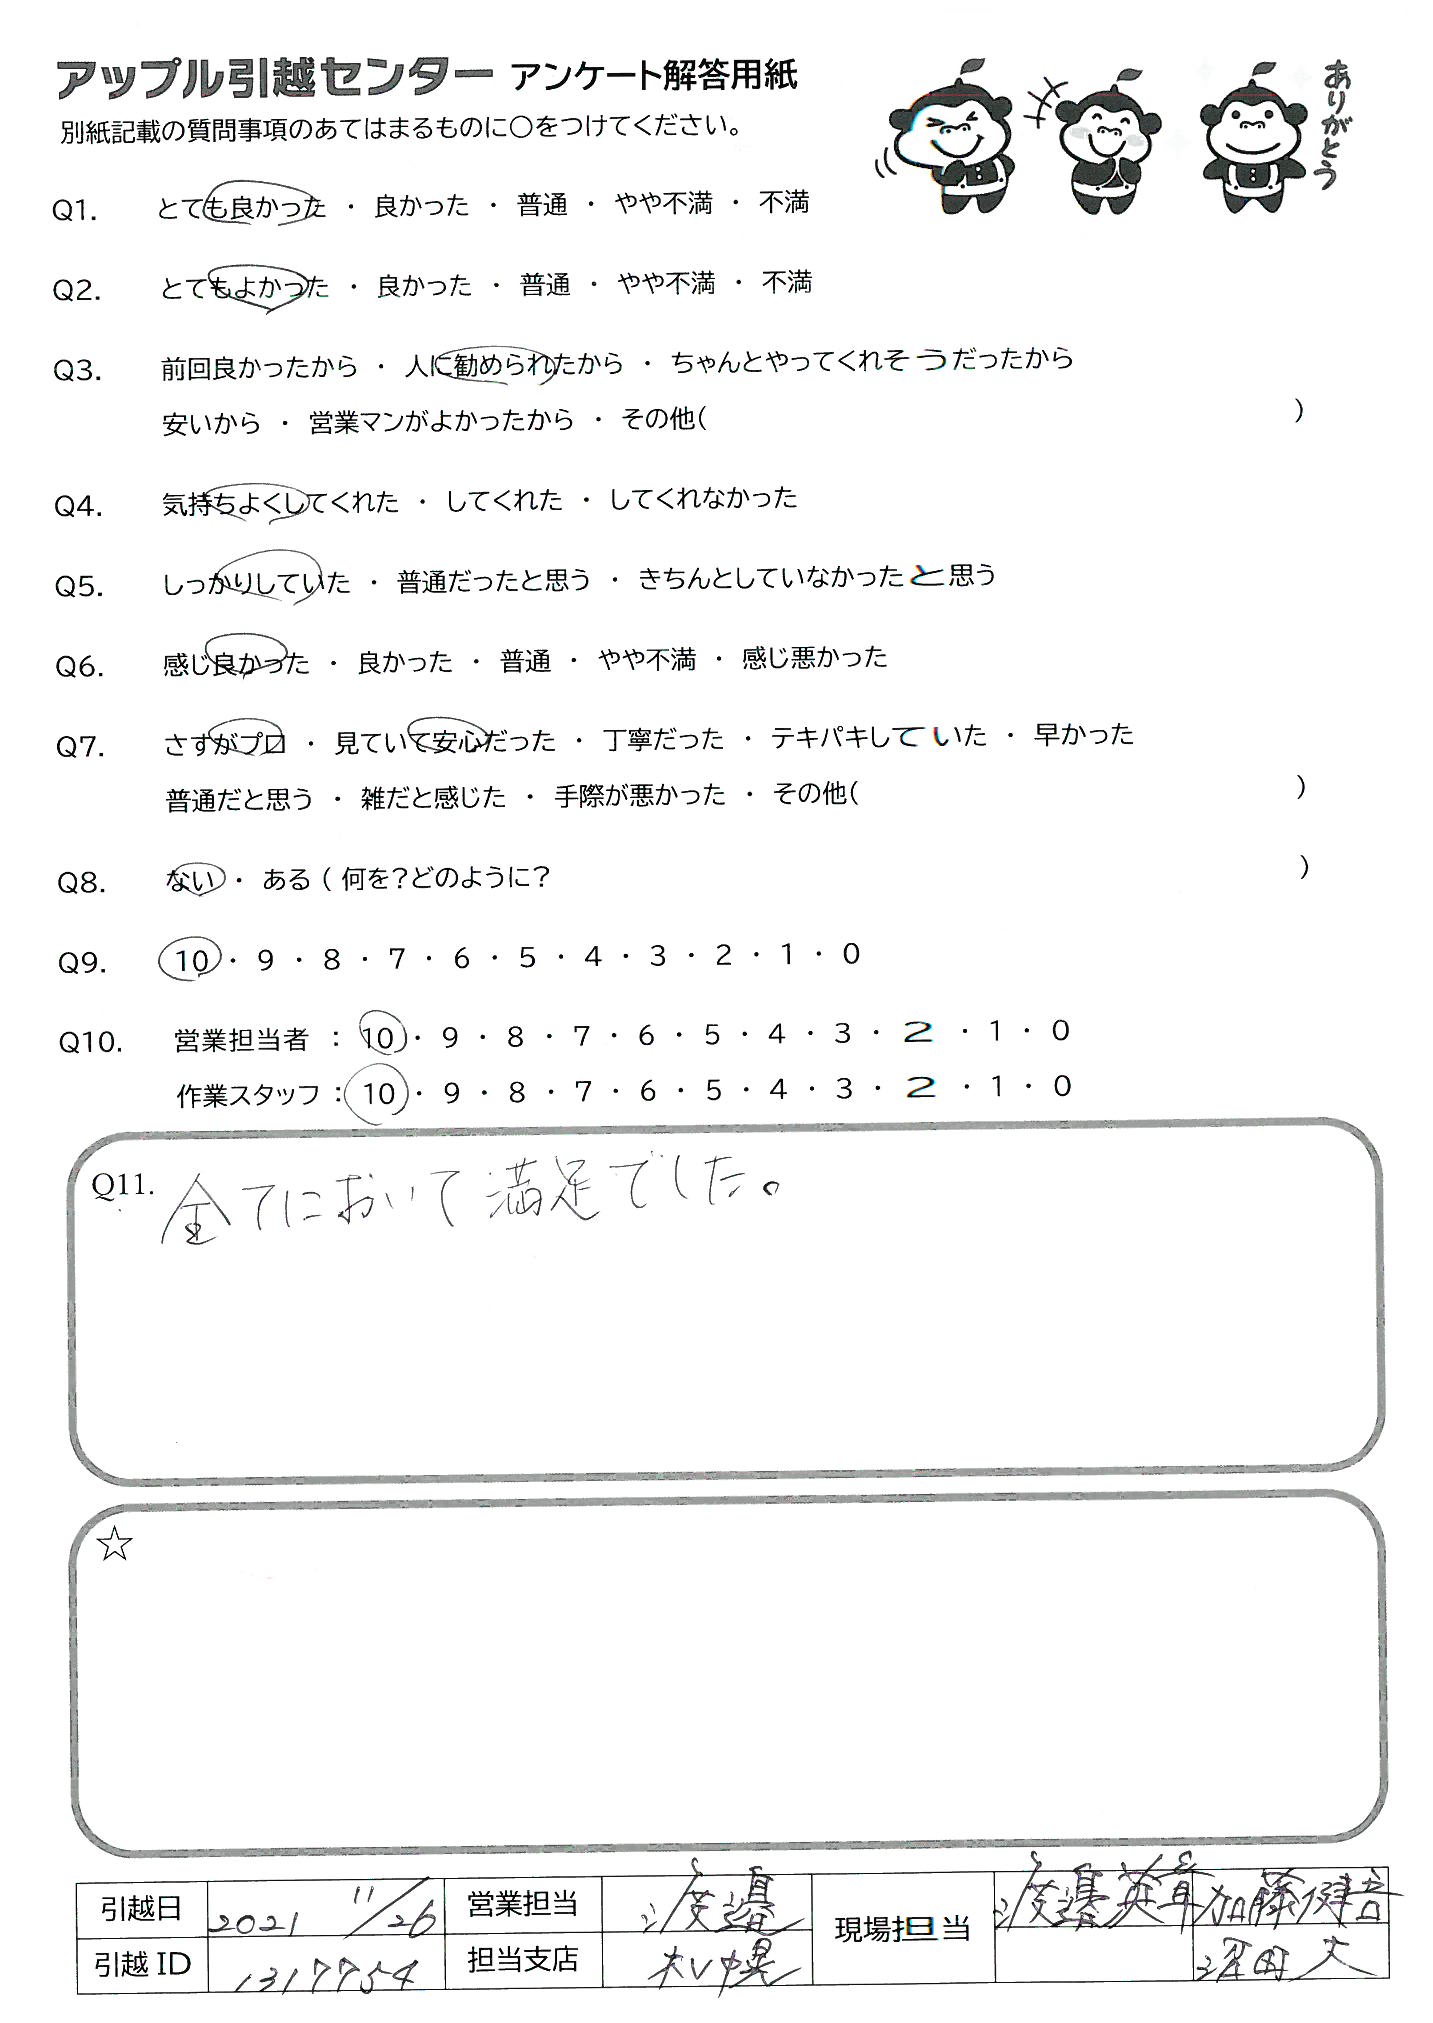 アップル引越センター アンケート解答用紙
ありがとう
別紙記載の質問事項のあてはまるものに○をつけてください。
Q1. とても良かった ・ 良かった ・ 普通 ・ やや不満 ・ 不満
Q2. とてもよかった ・ 良かった ・ 普通 ・ やや不満 ・ 不満
Q3. 前回良かったから ・ 人に勧められたから ・ ちゃんとやってくれそうだったから
安いから ・ 営業マンがよかったから ・ その他( )
Q4. 気持ちよくしてくれた ・ してくれた ・ してくれなかった
Q5. しっかりしていた ・ 普通だったと思う ・ きちんとしていなかったと思う
Q6. 感じ良かった ・ 良かった ・ 普通 ・ やや不満 ・ 感じ悪かった
Q7. さすがプロ ・ 見ていて安心だった ・ 丁寧だった ・ テキパキしていた ・ 早かった
普通だと思う ・ 雑だと感じた ・ 手際が悪かった ・ その他( )
Q8. ない ・ ある ( 何を?どのように? )
Q9. 10 ・ 9 ・ 8 ・ 7 ・ 6 ・ 5 ・ 4 ・ 3 ・ 2 ・ 1 ・ 0
Q10. 営業担当者 : 10 ・ 9 ・ 8 ・ 7 ・ 6 ・ 5 ・ 4 ・ 3 ・ 2 ・ 1 ・ 0
作業スタッフ : 10 ・ 9 ・ 8 ・ 7 ・ 6 ・ 5 ・ 4 ・ 3 ・ 2 ・ 1 ・ 0
Q11. 全てにおいて満足でした。
☆
引越日 2021 11/26 営業担当 渡邉 現場担当 渡邉英章 加藤健吾
引越 ID 1317754 担当支店 札幌 深町 大